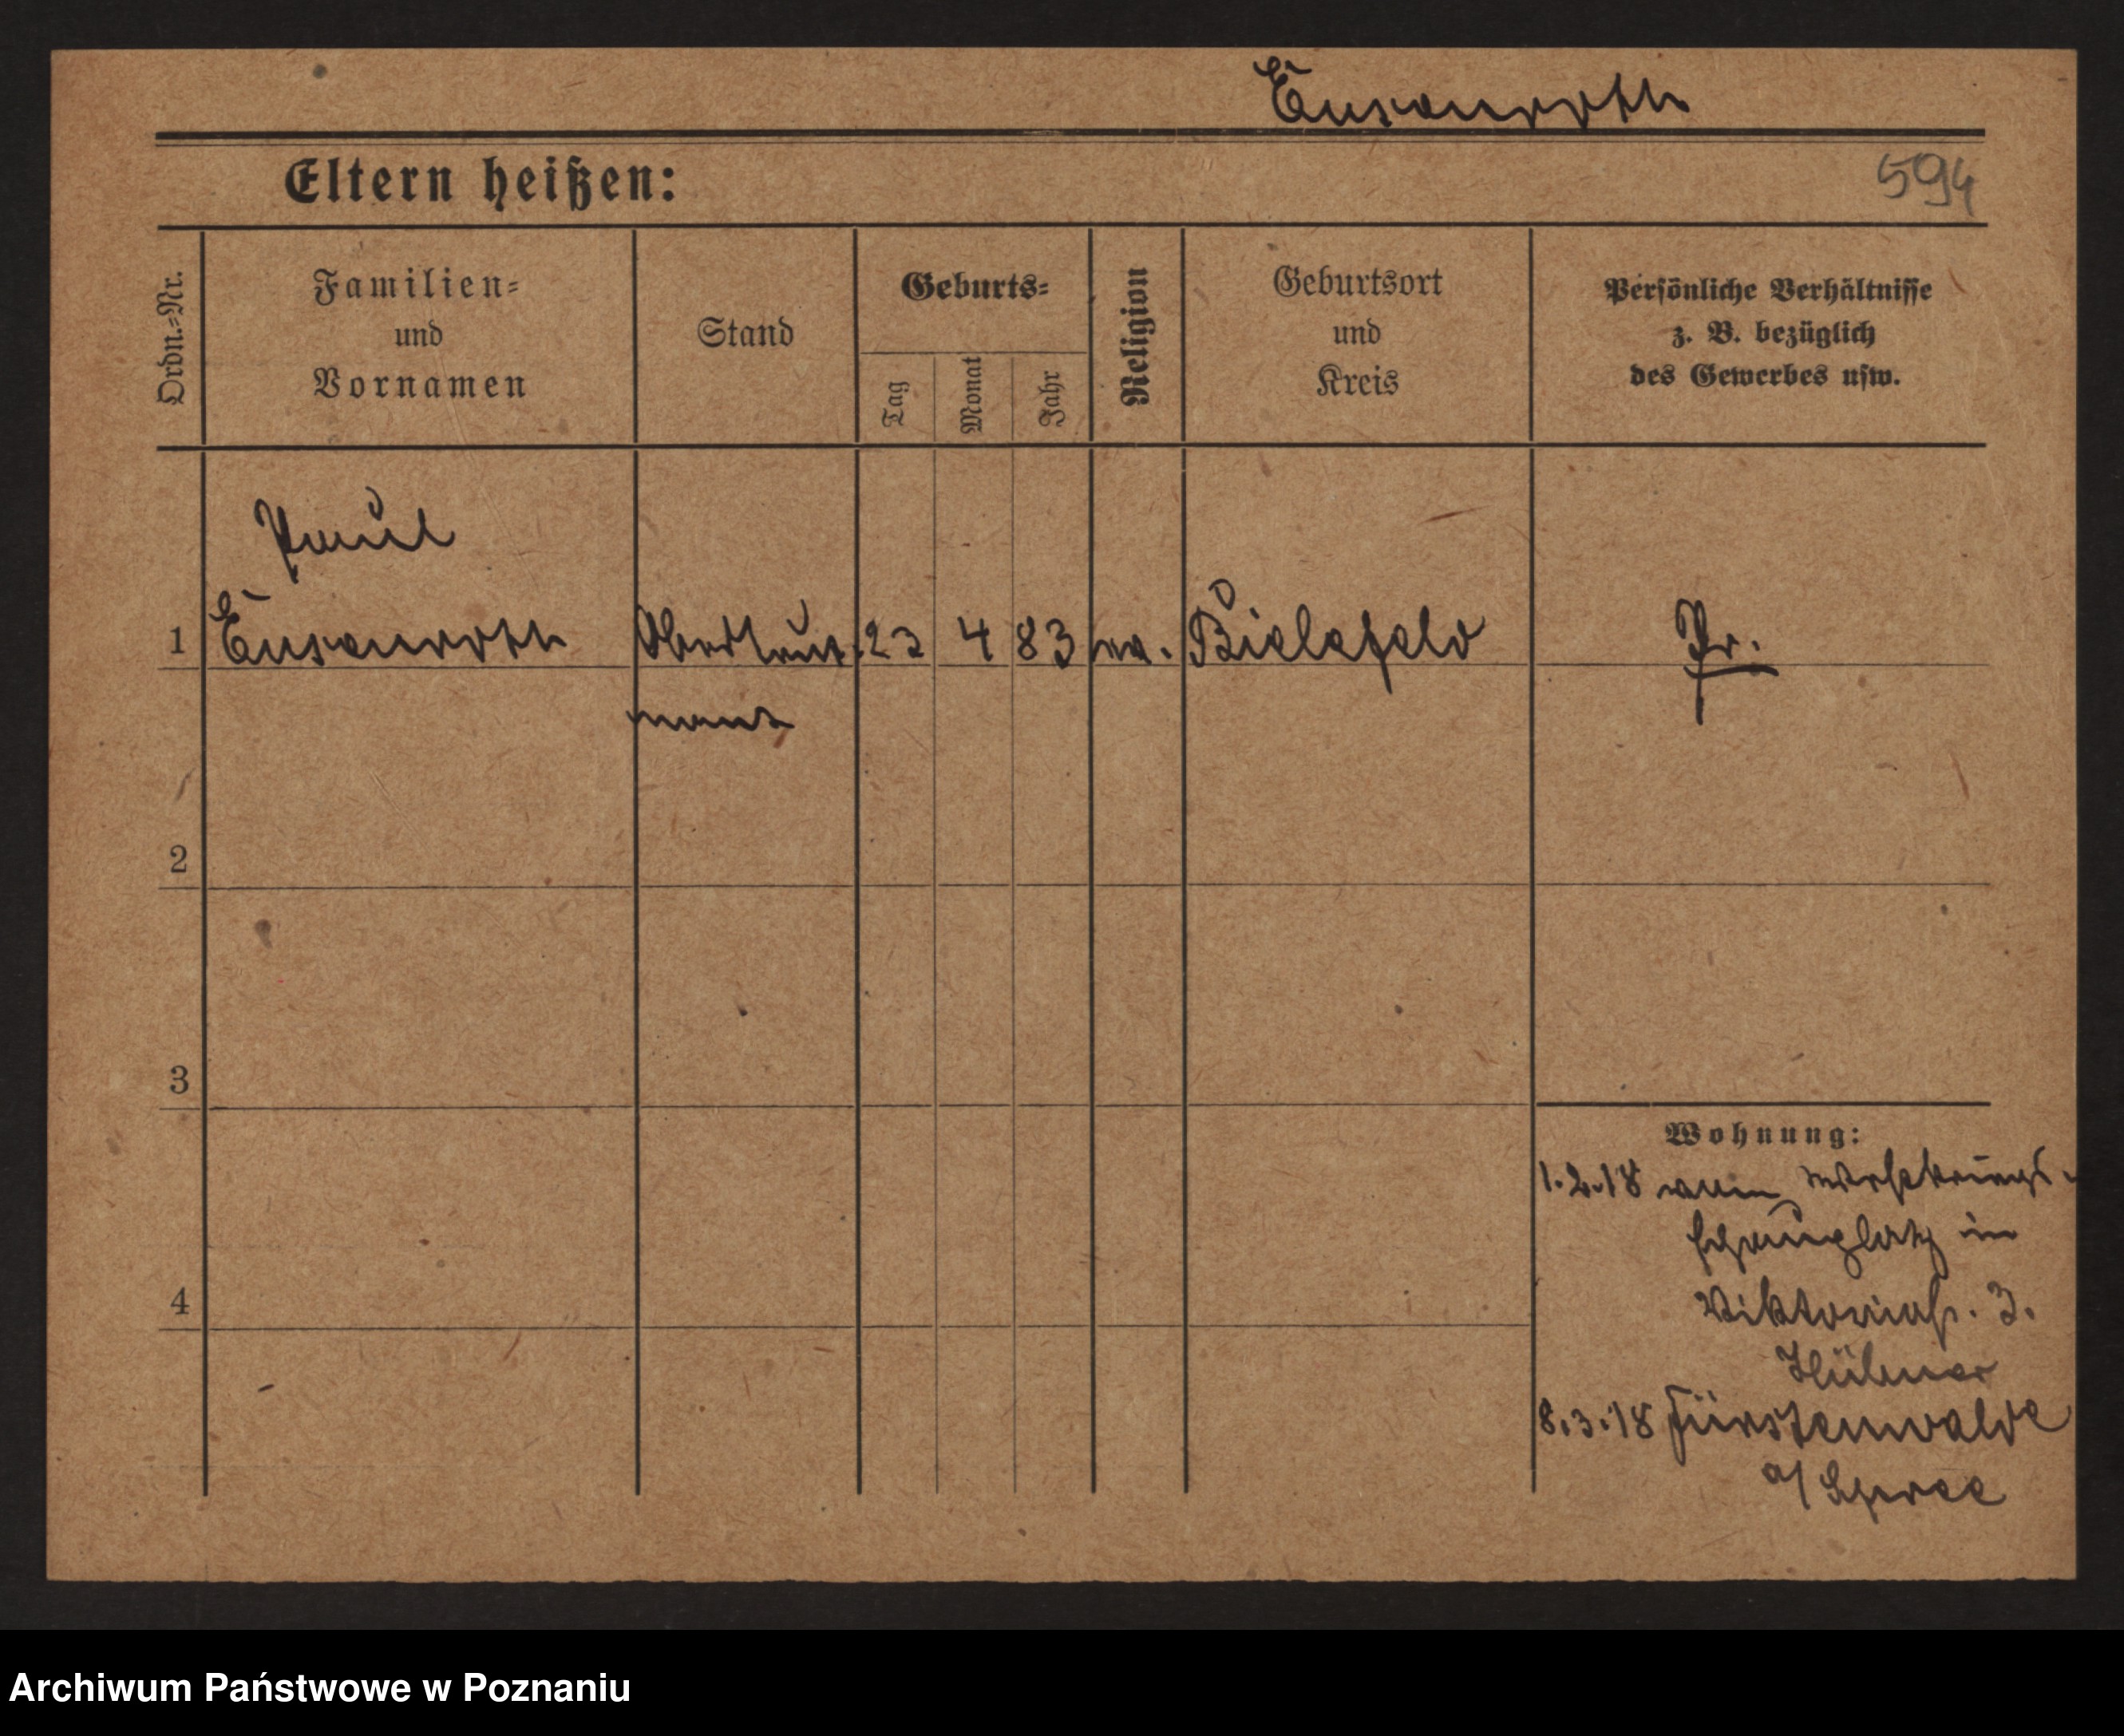 Eusenroth
Eltern heißen:
594
Ordn.-Nr.
Familien-
und
Vornamen
Stand
Geburts-
Tag
Monat
Jahr
Religion
Geburtsort
und
Kreis
Persönliche Verhältnisse
z. B. bezüglich
des Gewerbes usw.
Paul
1 Eusenroth Oberleut. 23 4 83 ev. Bielefeld Pr.
nant
2
3
Wohnung:
1.2.18 vom
schauplatz in
4
Viktoriastr. 3.
8.3.18 Fürstenwalde
a/ Spree
Archiwum Państwowe w Poznaniu